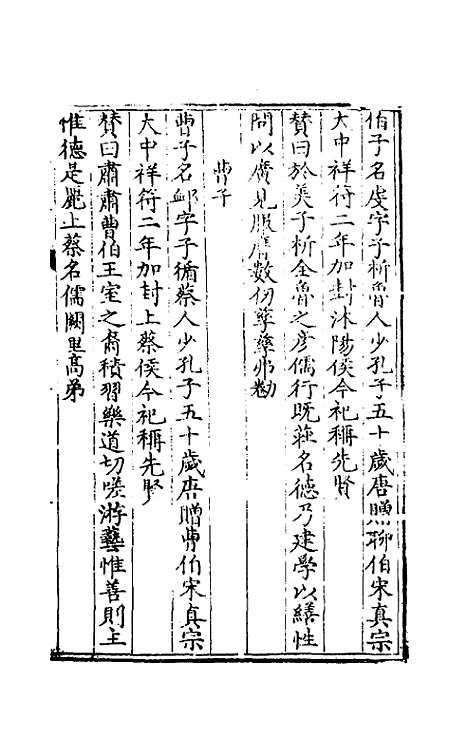 伯子名虔字子析魯人少孔子五十歲唐贈聊伯宋真宗
大中祥符二年加封沭陽侯今祀稱先賢
贊曰於美子析全魯之彦儒行既莊名德乃建學以繕性
問以廣見服膺數仞孳孳弗勌
曹子
曹子名䘏字子循蔡人少孔子五十歲唐贈曹伯宋真宗
大中祥符二年加封上蔡侯今祀稱先賢
贊曰肅肅曹伯王室之裔積習樂道切嗟游藝惟善則主
惟德是麗上蔡名儒闕里高弟